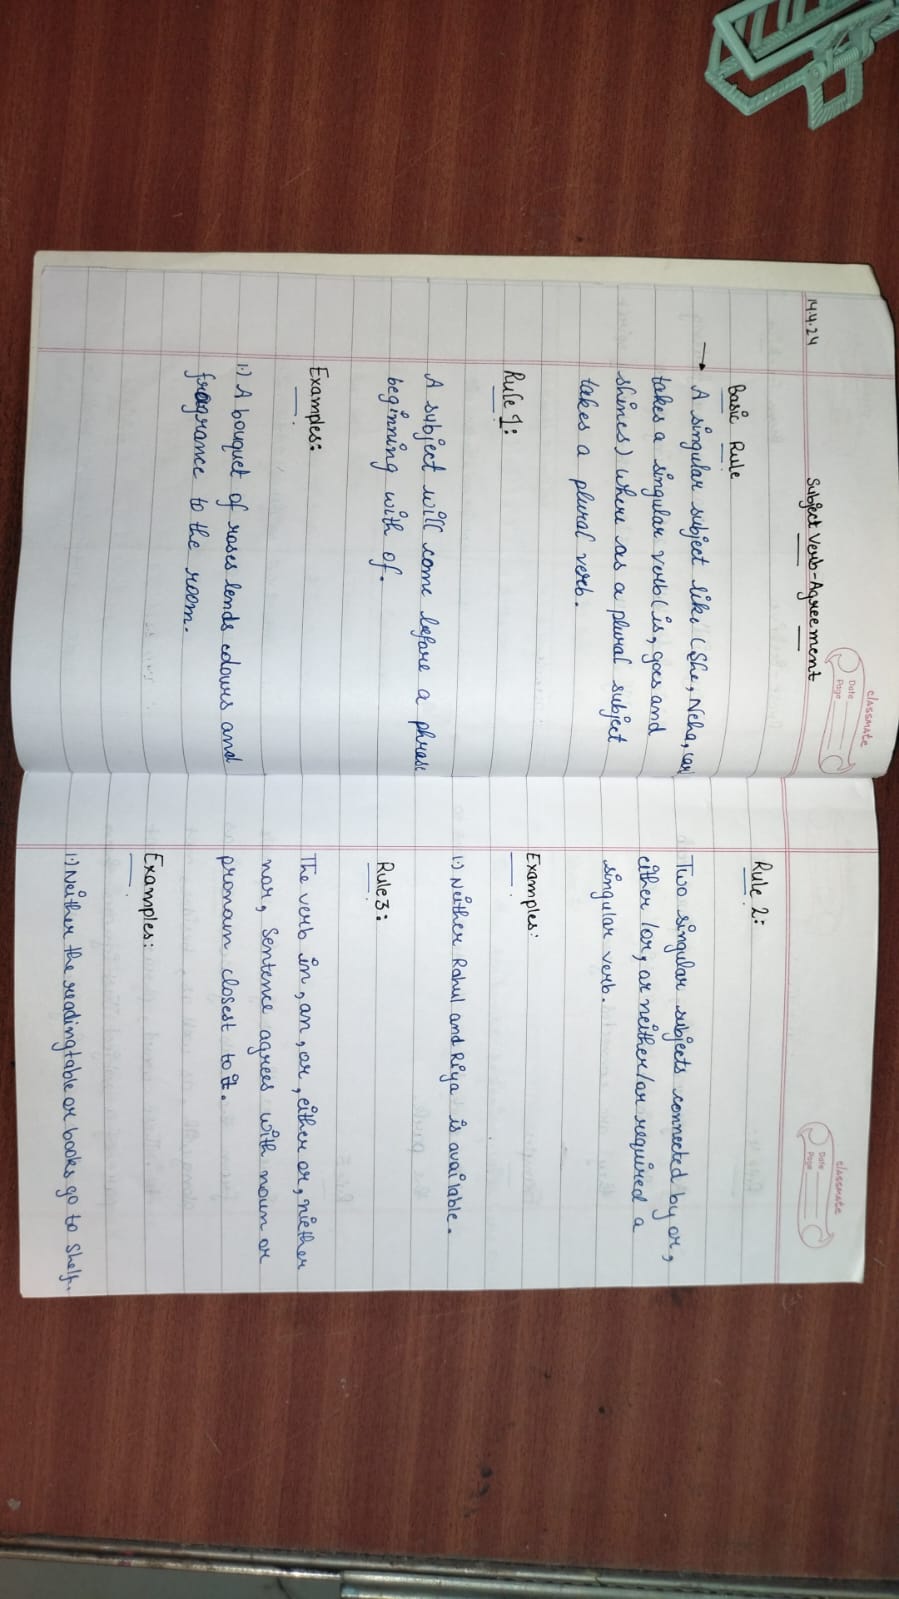 classmate
Date
Page
14.4.24
Subject Verb-Agreement
Basic Rule
→ A singular subject like (She, Neha, car)
takes a singular verb (is, goes and
shines) where as a plural subject
takes a plural verb.
Rule 1:
A subject will come before a phrase
beginning with of.
Examples:
1.) A bouquet of roses lends colours and
fragrance to the room.
classmate
Date
Page
Rule 2:
Two singular subjects connected by or,
either /or, or neither/or required a
singular verb.
Examples:
1.) Neither Rahul and Riya is available.
Rule3:
The verb in, an, or, either or, niether
nor, Sentence agrees with noun or
pronoun closest to it.
Examples:
1.) Neither the readingtable or books go to Shelf.